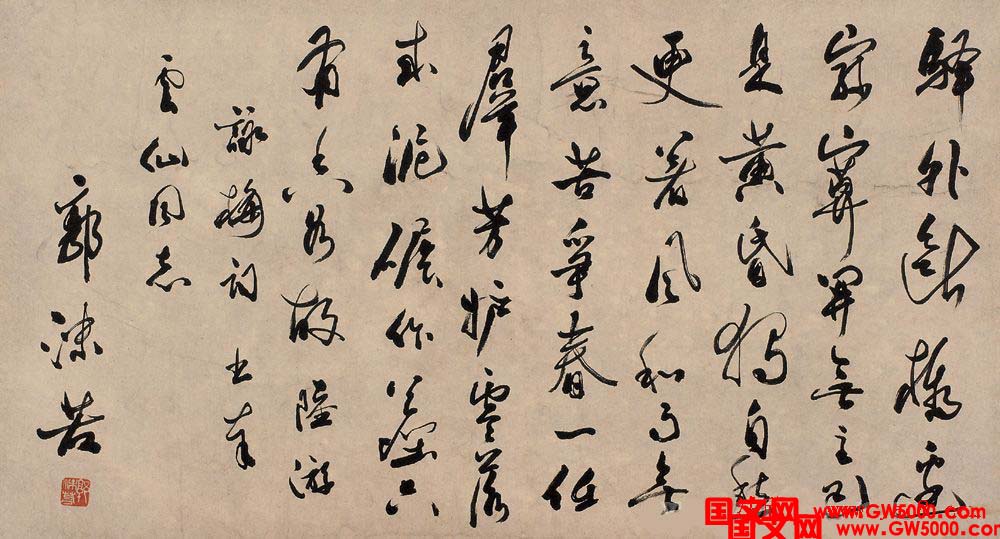 驛外斷橋邊
寂寞開無主已
是黄昏獨自愁
更着風和雨無
意苦爭春一任
羣芳妒零落
成泥碾作塵只
有香如故陸游
詠梅詞書奉
雲仙同志
郭沫若
郭沫若
国文网 www.GW5000.com
国文网 www.GW5000.com